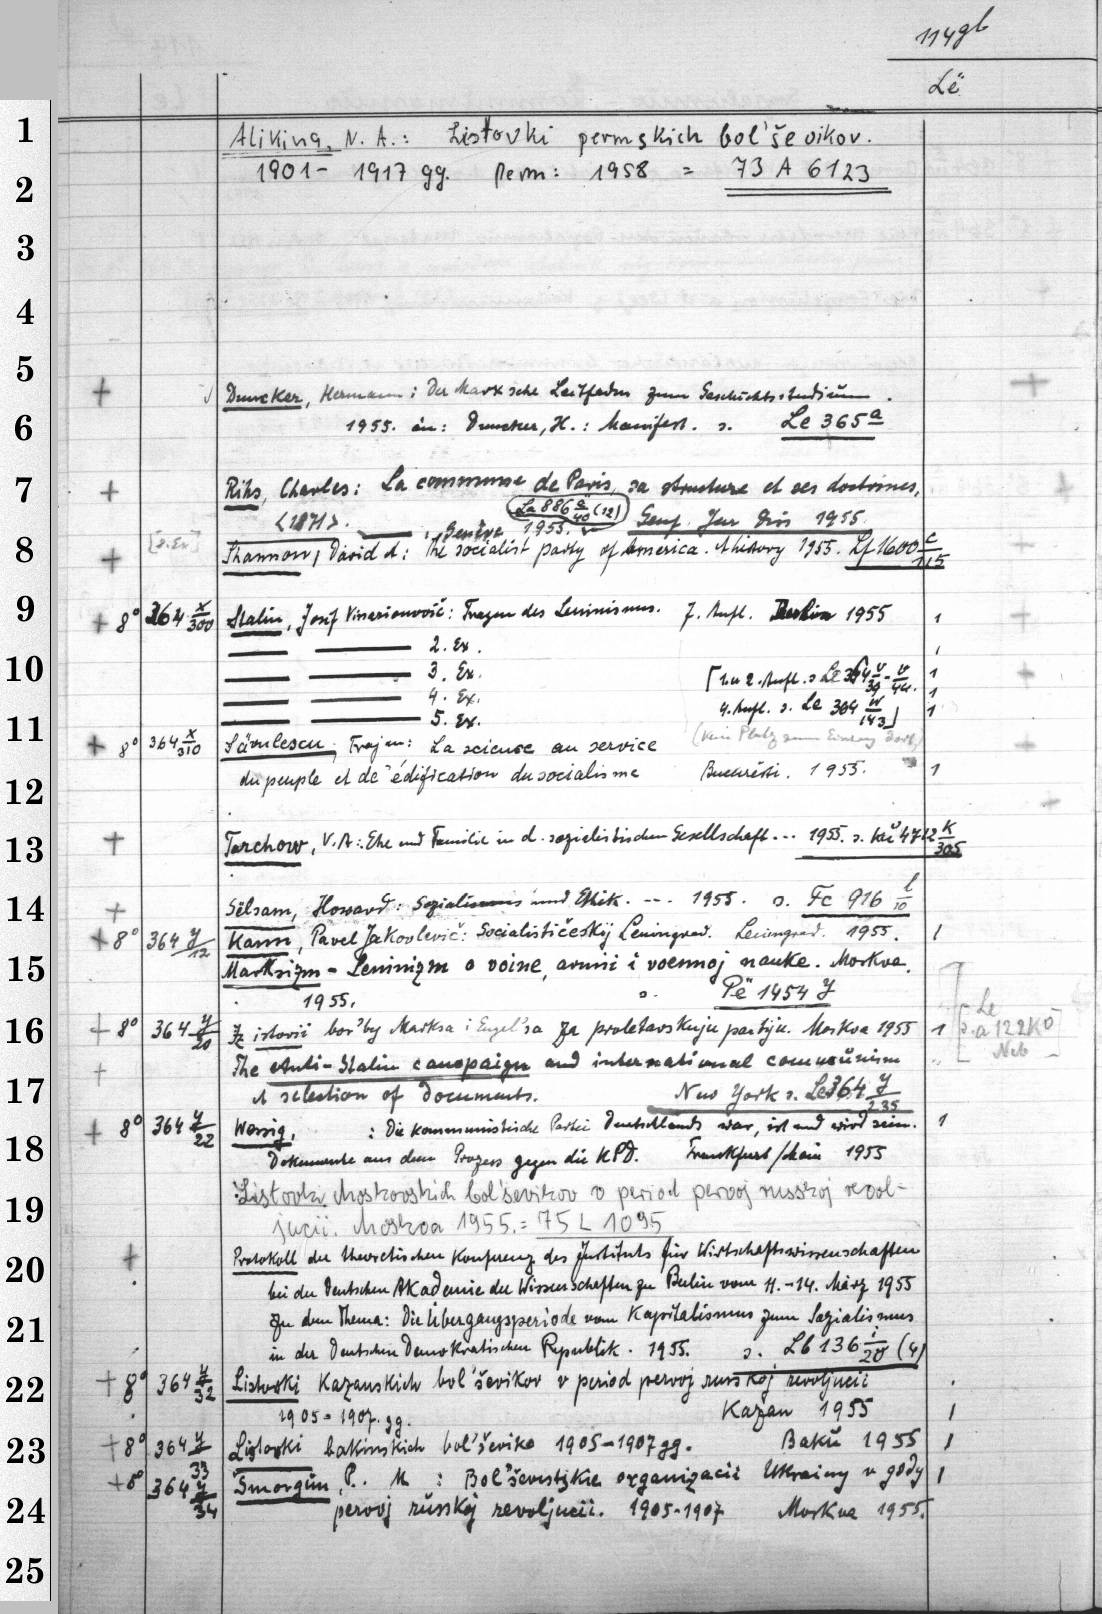 114gb
Lë
1
Alikina, N. A.: Listovki permskich bol'ševikov.
2
1901- 1917 gg. Perm: 1958 = 73 A 6123
3
4
5
+ Duncker, Hermann: Der Marxsche Leitfaden zum Geschichtsstudium.
6
1955. in: Duncker, H.: Manifest. s. Le 365 a
7
+ Rihs, Charles: La commune de Paris, sa structure et ses doctrines,
<1871>. Genève 1955. La 886 a/40 (12) Genf. Jur Diss 1955.
8
+ [2. Ex] Shannon, David A: The socialist party of America. A history 1955. Lf 1600 c/115
9
+ 8° 364 x/300 Stalin, Josif Vissarionovič: Fragen des Leninismus. 7. Aufl. Berlin 1955 1
2. Ex. 1
10
3. Ex. [1. u 2. Aufl. s Le 364 v/39 - v/44. 1
4. Ex. 4. Aufl. s. Le 364 w/143] 1
11
5. Ex. 1
(kein Platz zum Eintrag dort)
+ 8° 364 x/310 Săvulescu, Trajan: La science au service
12
du peuple et de l'édification du socialisme Bucureşti. 1955. 1
13
+ Tarchow, V. A.: Ehe und Familie in d. sozialistischen Gesellschaft... 1955. s. Kü 4712 K/305
14
+ Selsam, Howard: Sozialismus und Ethik. --- 1955. s. Fc 916 l/10
+ 8° 364 y/12 Kann, Pavel Jakovlevič: Socialističeskij Leningrad. Leningrad. 1955. 1
15
Marksizm-Leninizm o voine, armii i voennoj nauke. Moskva.
1955. s. Pë 1454 y
16
+ 8° 364 y/20 Iz istorii bor'by Marksa i Engel'sa za proletarskuju partiju. Moskva 1955 1
[Le s. a 122 Kö Neb]
+ The Anti-Stalin campaign and international communism
17
A selection of documents. New York s. Le 364 y/235
+ 8° 364 y/22 Wessig, : Die kommunistische Partei Deutschlands war, ist und wird sein. 1
18
Dokumente aus dem Prozess gegen die KPD. Frankfurt/Main 1955
19
Listovki Moskovskich bol'ševikov v period pervoj russkoj revol-
jucii. Moskva 1955. = 75 L 1095
20
+ Protokoll der theoretischen Konferenz des Instituts für Wirtschaftswissenschaften
bei der Deutschen Akademie der Wissenschaften zu Berlin vom 11.-14. März 1955
21
zu dem Thema: Die Übergangsperiode vom Kapitalismus zum Sozialismus
in der Deutschen Demokratischen Republik. 1955. s. Lb 136 i/20 (4)
22
+ 8° 364 y/32 Listovki Kazanskich bol'ševikov v period pervoj russkoj revoljucii
1905-1907. gg. Kazan 1955 1
23
+ 8° 364 y/33 Listovki bakinskich bol'ševiko 1905-1907 gg. Baku 1955 1
+ 8° 364 y/34 Šmorgun, P. M : Bol'ševistskie organizacii Ukrainy v gody 1
24
pervoj russkoj revoljucii. 1905-1907 Moskva 1955.
25